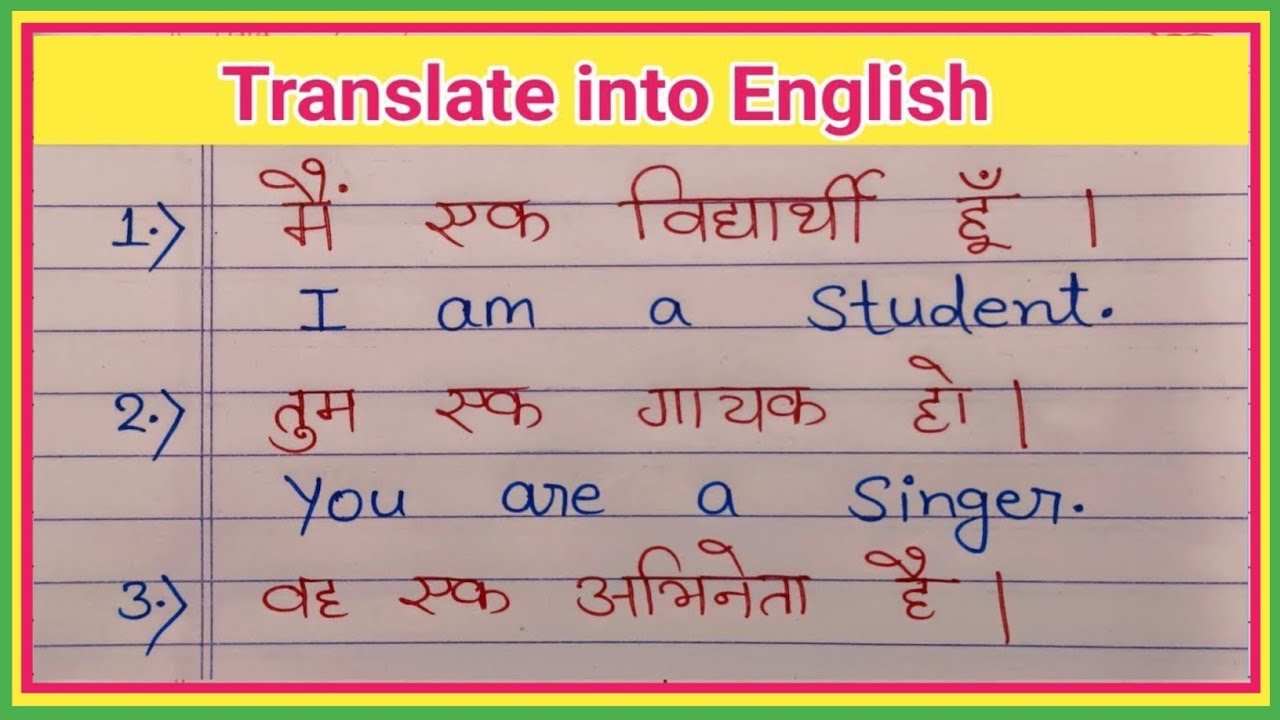 Translate into English
1.) मैं एक विद्यार्थी हूँ ।
I am a Student.
2.) तुम एक गायक हो ।
You are a Singer.
3.) वह एक अभिनेता है ।